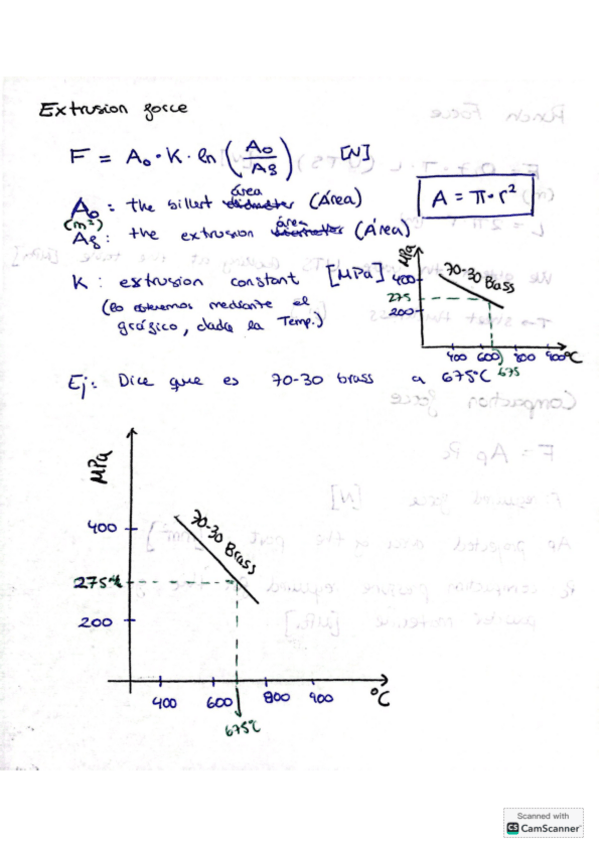 Extrusion force
F = A₀ · K · ln (A₀/Af) [N]
área
A₀ : the billet diameter (Área)
(m²)
área
Af : the extrusion diameter (Área)
A = π · r²
K : extrusion constant [MPa]
(lo obtenemos mediante el
gráfico, dada la Temp.)
MPa
400
275
200
70-30 Brass
400 600 800 900 °C
675
Ej: Dice que es 70-30 brass a 675°C
MPa
400
275
200
70-30 Brass
400 600 800 900 °C
675°C
Scanned with
CS CamScanner